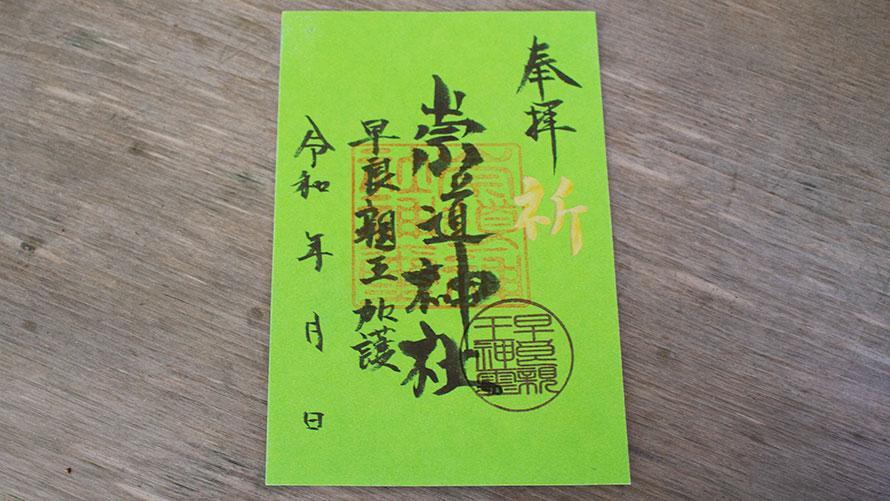 奉拝
祈
崇道神社
早良親王加護
令和 年 月 日
早良親
王神霊